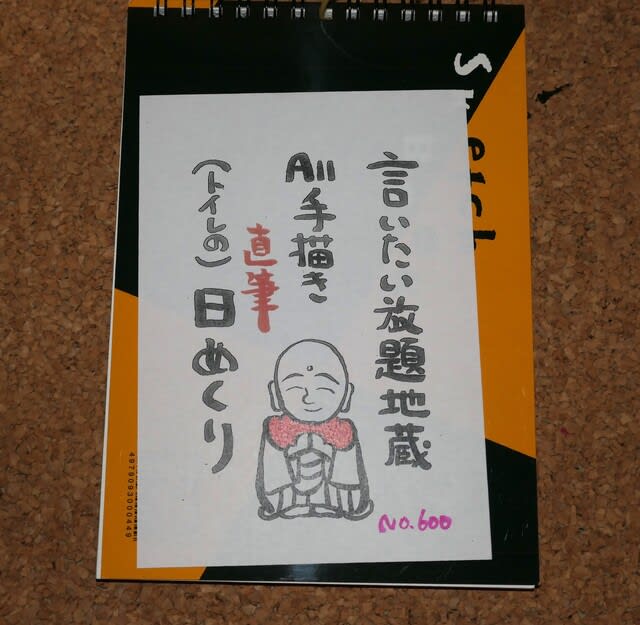 言いたい放題地蔵
All手描き
直筆
(トイレの)日めくり
No.600
Sketch
4979093000449